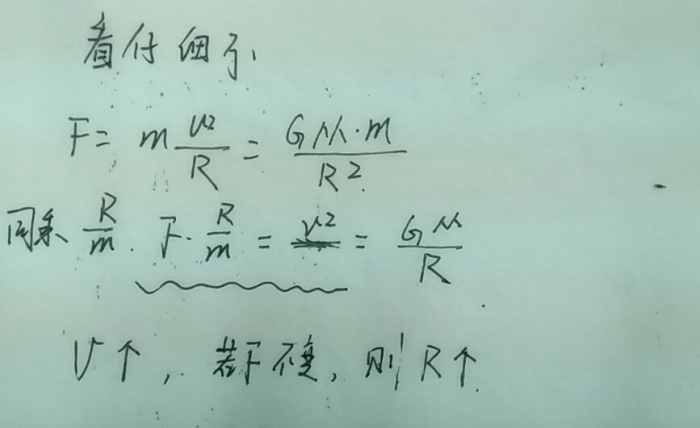 看仔细了
F = m v²/R = GM·m/R²
同乘 R/m. F·R/m = v² = GM/R
V↑, 若F不变, 则R↑